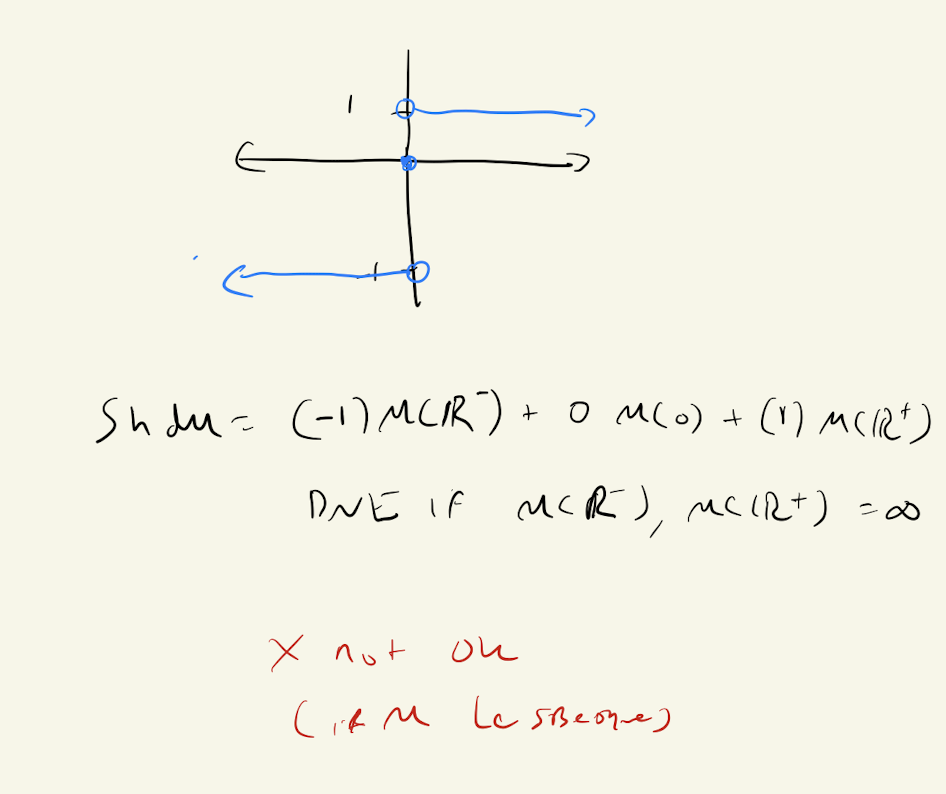 1
-1
∫ h dμ = (-1) μ(ℝ⁻) + 0 μ(0) + (1) μ(ℝ⁺)
DNE if μ(ℝ⁻), μ(ℝ⁺) = ∞
X not ok
(if μ Lesbegue)